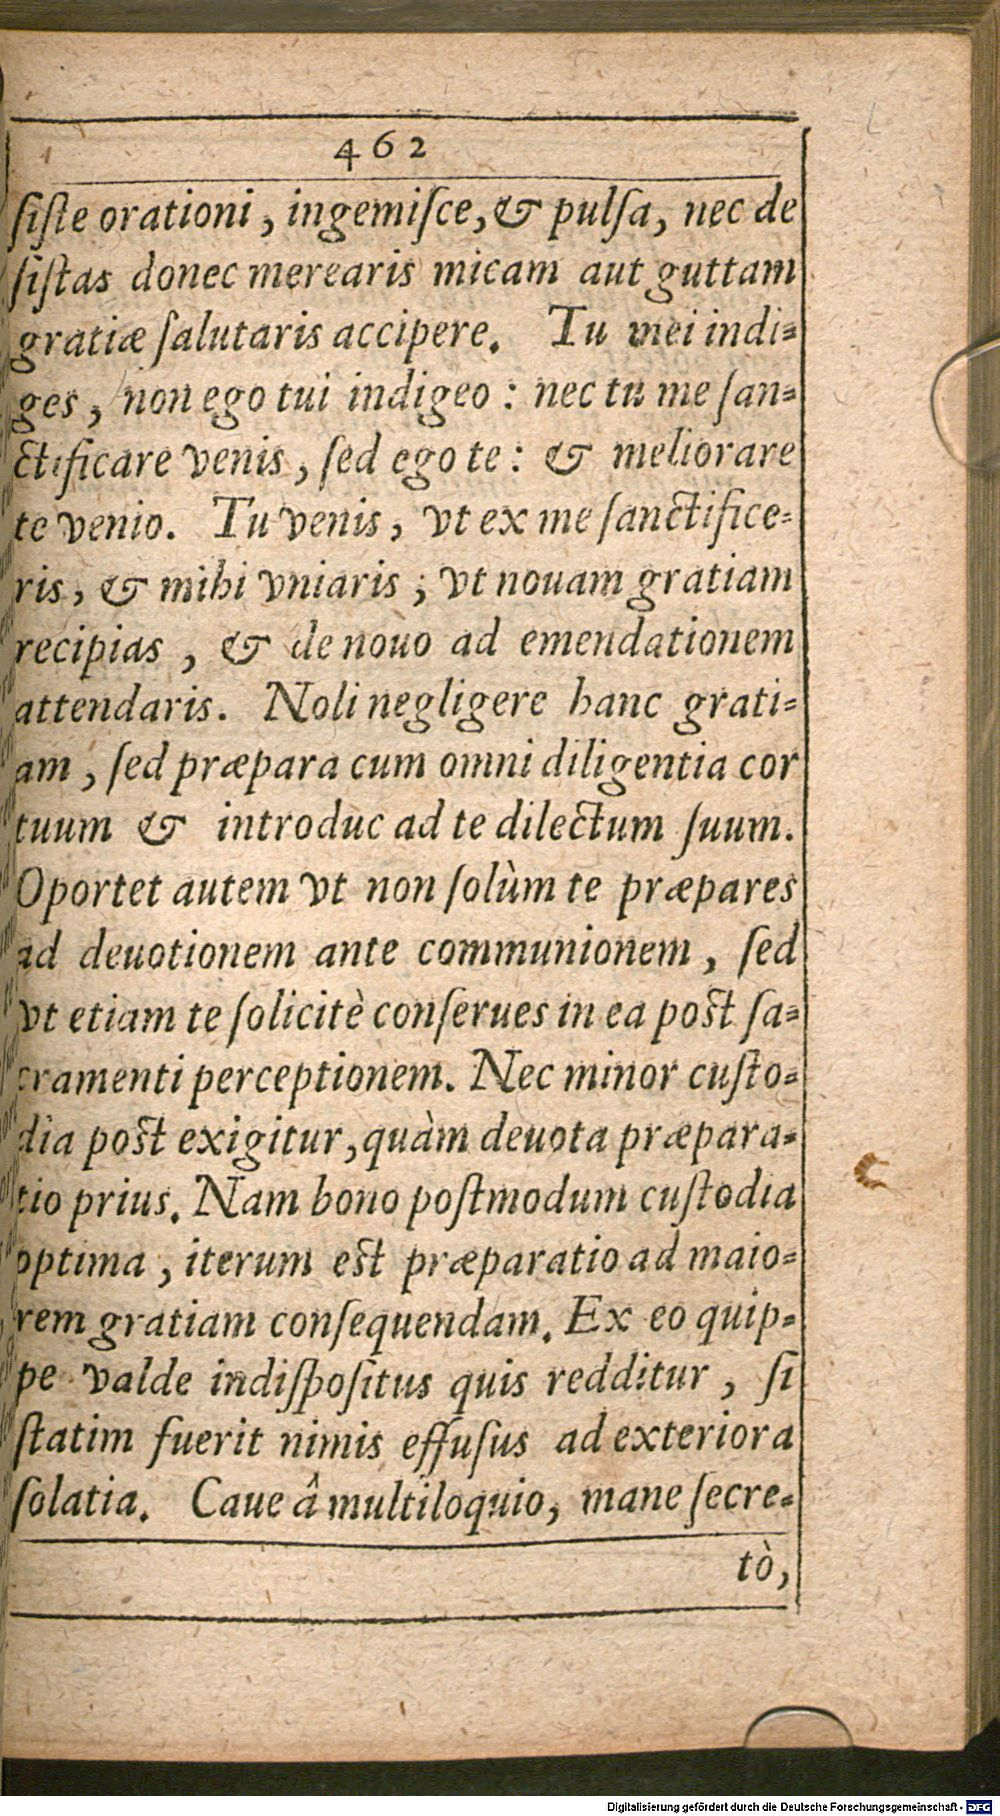 462
ſiſte orationi, ingemiſce, & pulſa, nec de
ſiſtas donec merearis micam aut guttam
gratiæ ſalutaris accipere. Tu mei indi=
ges, non ego tui indigeo: nec tu me ſan=
ctificare venis, ſed ego te: & meliorare
te venio. Tu venis, vt ex me ſanctifice=
ris, & mihi vniaris; vt nouam gratiam
recipias, & de nouo ad emendationem
attendaris. Noli negligere hanc grati=
am, ſed præpara cum omni diligentia cor
tuum & introduc ad te dilectum ſuum.
Oportet autem vt non ſolùm te præpares
ad deuotionem ante communionem, ſed
vt etiam te ſolicitè conſerues in ea poſt ſa=
cramenti perceptionem. Nec minor cuſto=
dia poſt exigitur, quàm deuota præpara=
tio prius. Nam bono poſtmodum cuſtodia
optima, iterum eſt præparatio ad maio=
rem gratiam conſequendam. Ex eo quip=
pe valde indiſpoſitus quis redditur, ſi
ſtatim fuerit nimis effuſus ad exteriora
ſolatia. Caue â multiloquio, mane ſecre=
tò,
Digitalisierung gefördert durch die Deutsche Forschungsgemeinschaft - DFG